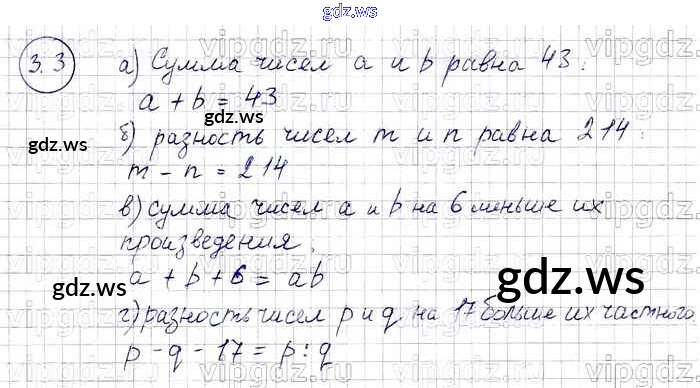 gdz.ws
3.3 а) Сумма чисел a и b равна 43:
a + b = 43
gdz.ws
б) разность чисел m и n равна 214:
gdz.ws
m - n = 214
в) сумма чисел a и b на 6 меньше их
произведения.
a + b + 6 = ab
gdz.ws
г) разность чисел p и q на 17 больше их частного
p - q - 17 = p : q
gdz.ws